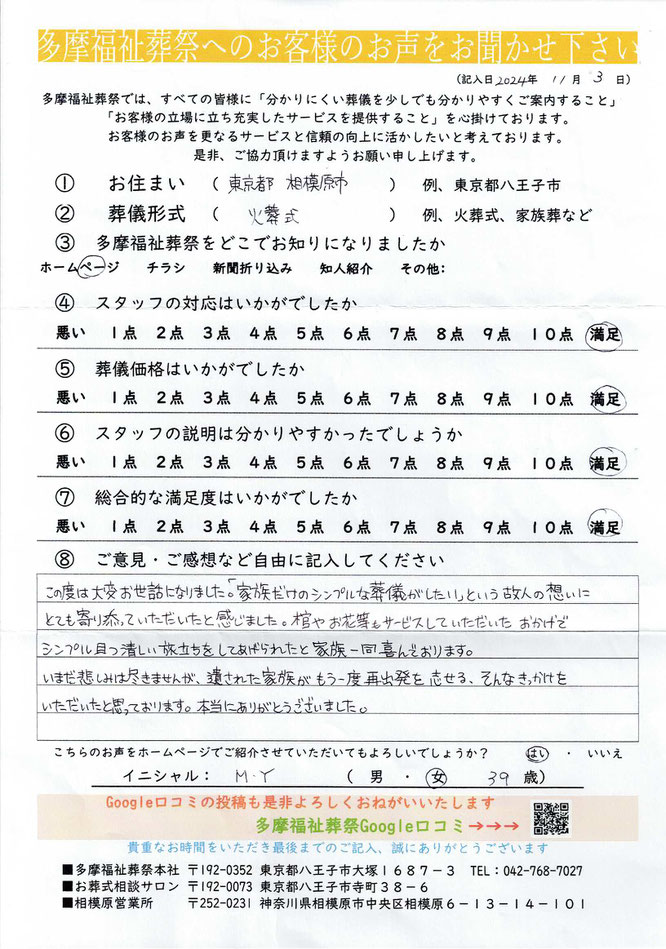 多摩福祉葬祭へのお客様のお声をお聞かせ下さい
（記入日2024年 11月 3 日）
多摩福祉葬祭では、すべての皆様に「分かりにくい葬儀を少しでも分かりやすくご案内すること」
「お客様の立場に立ち充実したサービスを提供すること」を心掛けております。
お客様のお声を更なるサービスと信頼の向上に活かしたいと考えております。
是非、ご協力頂けますようお願い申し上げます。
① お住まい （ 東京都 相模原市 ） 例、東京都八王子市
② 葬儀形式 （ 火葬式 ） 例、火葬式、家族葬など
③ 多摩福祉葬祭をどこでお知りになりましたか
ホームページ チラシ 新聞折り込み 知人紹介 その他：
④ スタッフの対応はいかがでしたか
悪い 1点 2点 3点 4点 5点 6点 7点 8点 9点 10点 満足
⑤ 葬儀価格はいかがでしたか
悪い 1点 2点 3点 4点 5点 6点 7点 8点 9点 10点 満足
⑥ スタッフの説明は分かりやすかったでしょうか
悪い 1点 2点 3点 4点 5点 6点 7点 8点 9点 10点 満足
⑦ 総合的な満足度はいかがでしたか
悪い 1点 2点 3点 4点 5点 6点 7点 8点 9点 10点 満足
⑧ ご意見・ご感想など自由に記入してください
この度は大変お世話になりました。「家族だけのシンプルな葬儀がしたい」という故人の想いに
とても寄り添っていただいたと感じました。棺やお花等もサービスしていただいたおかげで
シンプル且つ清しい旅立ちをしてあげられたと家族一同喜んでおります。
いまだ悲しみは尽きませんが、遺された家族がもう一度再出発を志せる、そんなきっかけを
いただいたと思っております。本当にありがとうございました。
こちらのお声をホームページでご紹介させていただいてもよろしいでしょうか？ はい ・ いいえ
イニシャル： M・Y （ 男 ・ 女 39 歳）
Google口コミの投稿も是非よろしくおねがいいたします
多摩福祉葬祭Google口コミ→→→
貴重なお時間をいただき最後までのご記入、誠にありがとうございます
■多摩福祉葬祭本社 〒192-0352 東京都八王子市大塚1687-3 TEL：042-768-7027
■お葬式相談サロン 〒192-0073 東京都八王子市寺町38-6
■相模原営業所 〒252-0231 神奈川県相模原市中央区相模原6-13-14-101